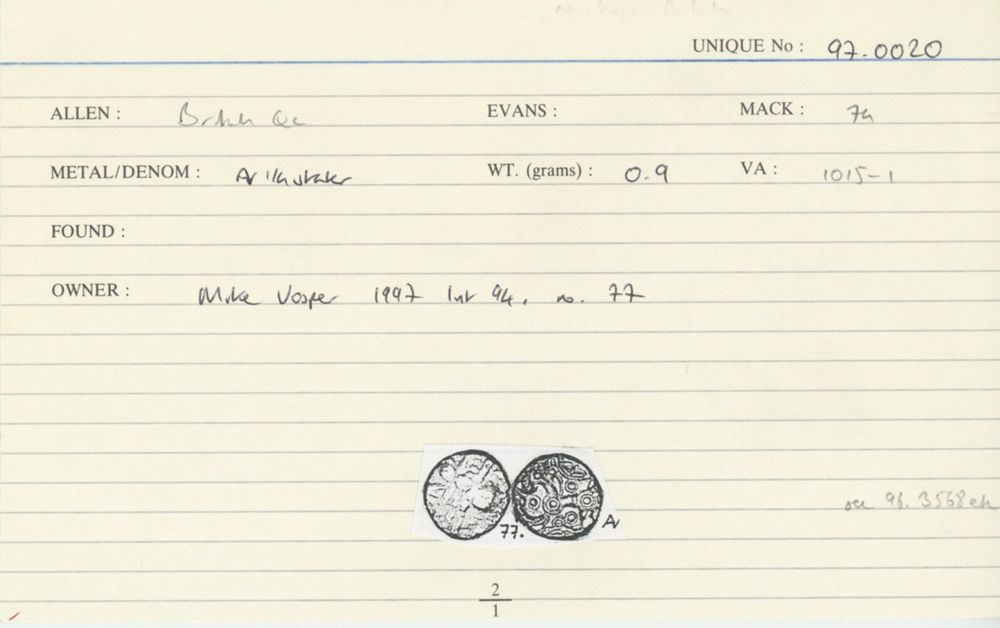 UNIQUE No : 97.0020
ALLEN : British Qc EVANS : MACK : 79
METAL/DENOM : Ar 1/4 stater WT. (grams) : 0.9 VA : 1015-1
FOUND :
OWNER : Mike Vosper 1997 list 94, no. 77
see 96.3568 etc
77. Ar
2
1